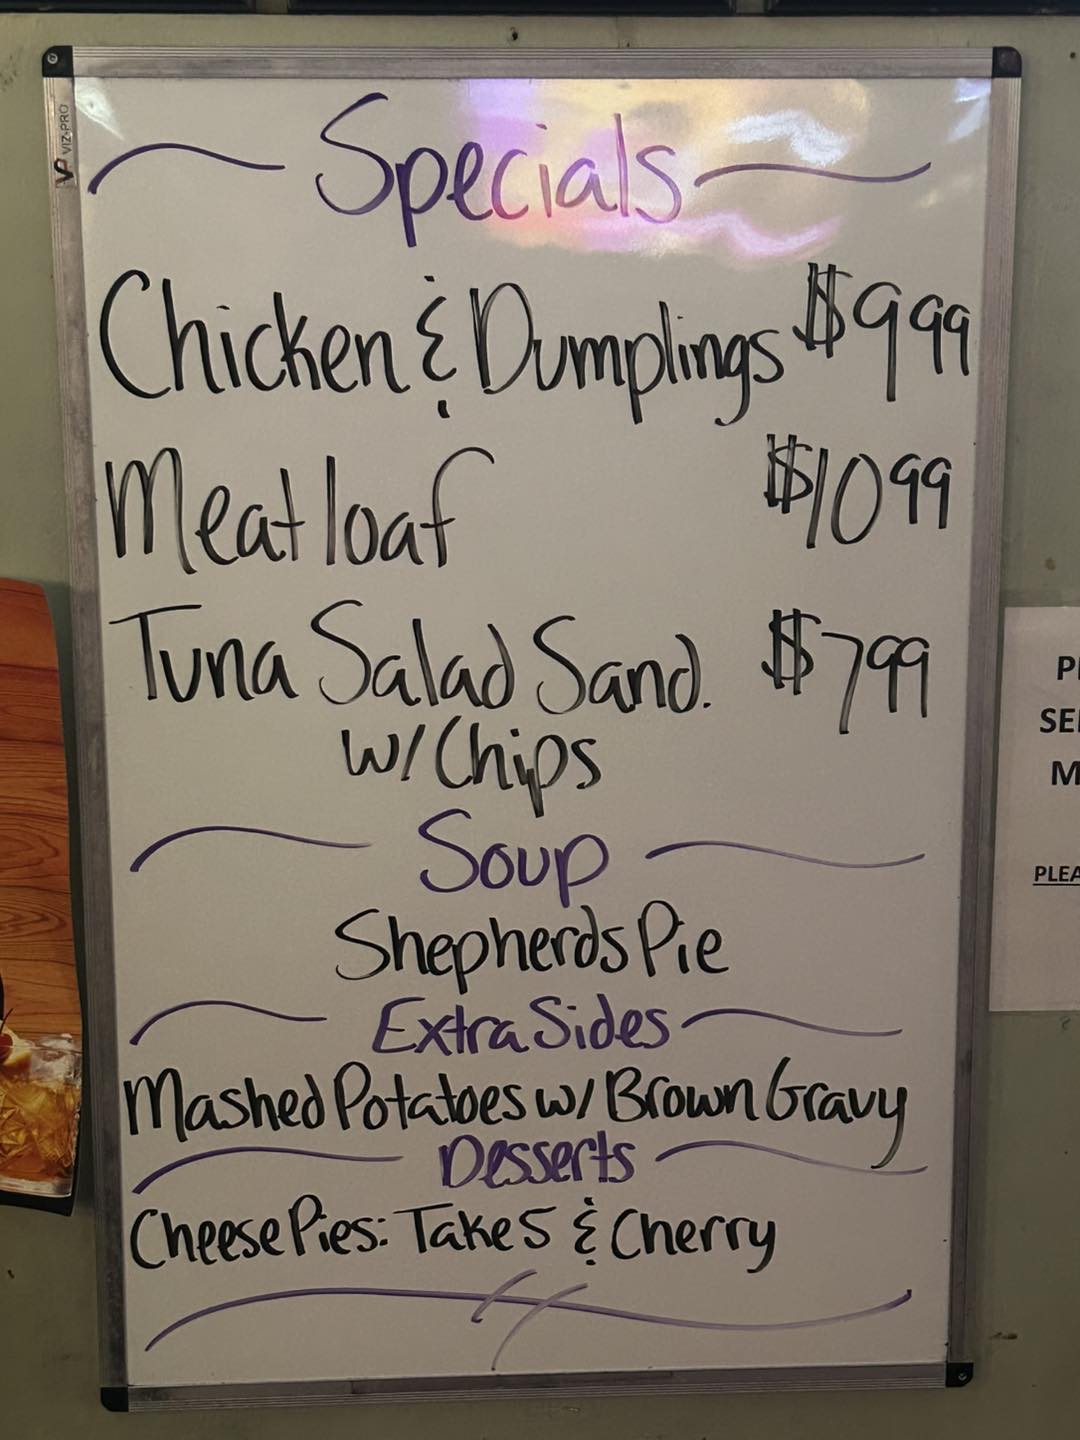 VIZ-PRO
Specials
Chicken & Dumplings $9 99
Meatloaf $10 99
Tuna Salad Sand. $7 99
w/ Chips
Soup
Shepherds Pie
Extra Sides
Mashed Potatoes w/ Brown Gravy
Desserts
Cheese Pies: Take 5 & Cherry